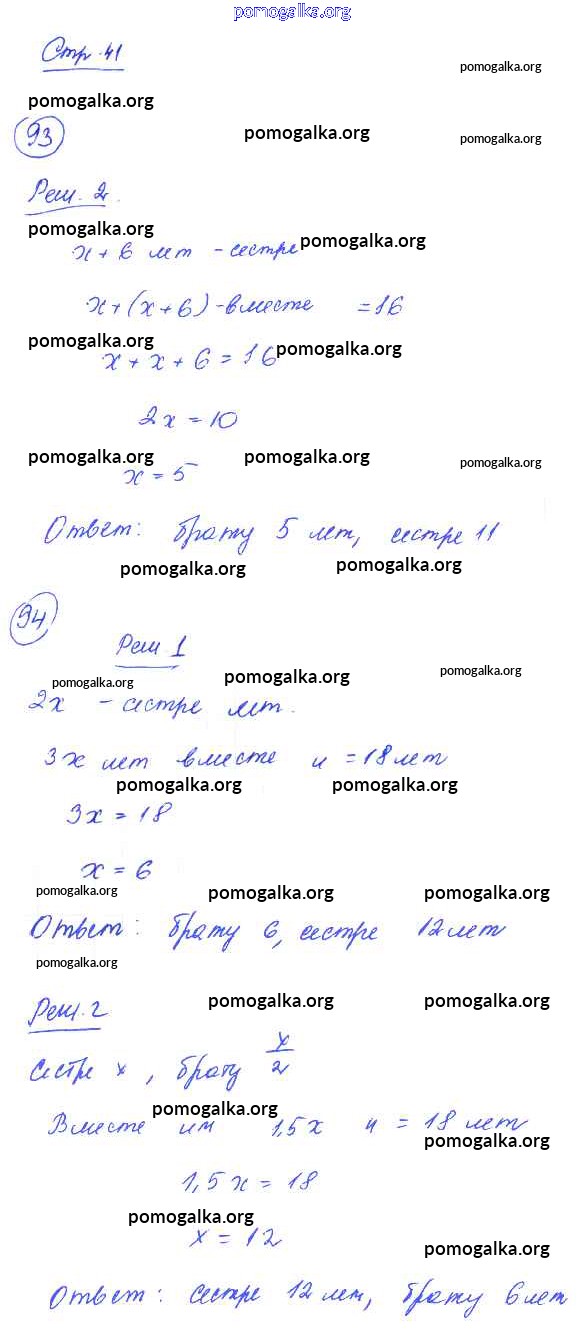 pomogalka.org
Стр. 41
pomogalka.org
pomogalka.org
93
pomogalka.org
pomogalka.org
Реш. 2.
pomogalka.org
x + 6 лет - сестре
pomogalka.org
x + (x + 6) - вместе = 16
pomogalka.org
x + x + 6 = 16
pomogalka.org
2x = 10
pomogalka.org
pomogalka.org
pomogalka.org
x = 5
Ответ: брату 5 лет, сестре 11
pomogalka.org
pomogalka.org
94
Реш 1
pomogalka.org
pomogalka.org
pomogalka.org
2x - сестре лет.
3x лет вместе и = 18 лет
pomogalka.org
pomogalka.org
3x = 18
x = 6
pomogalka.org
pomogalka.org
pomogalka.org
Ответ: брату 6, сестре 12 лет
pomogalka.org
Реш. 2
pomogalka.org
pomogalka.org
Сестре x, брату x/2
pomogalka.org
Вместе им 1,5x и = 18 лет
pomogalka.org
1,5x = 18
pomogalka.org
x = 12
pomogalka.org
Ответ: сестре 12 лет, брату 6 лет